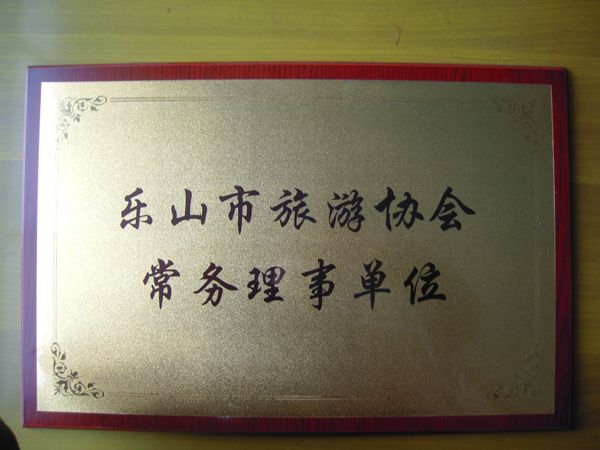 乐山市旅游协会
常务理事单位